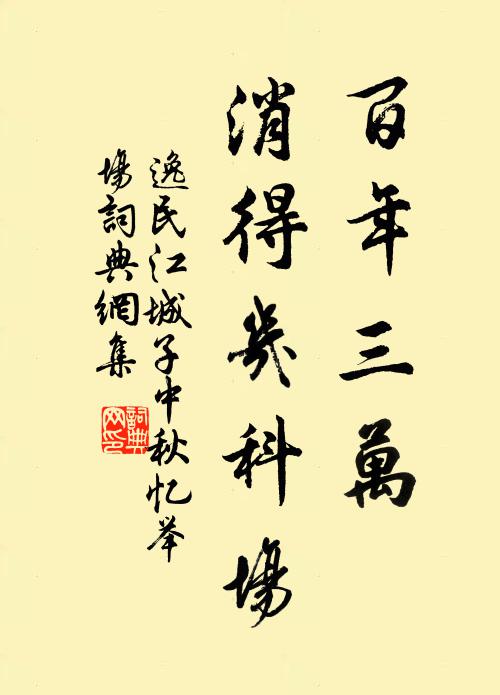 百年三萬
消得幾科場
逸民江城子中秋忆举
場詞典網集
詞典网印